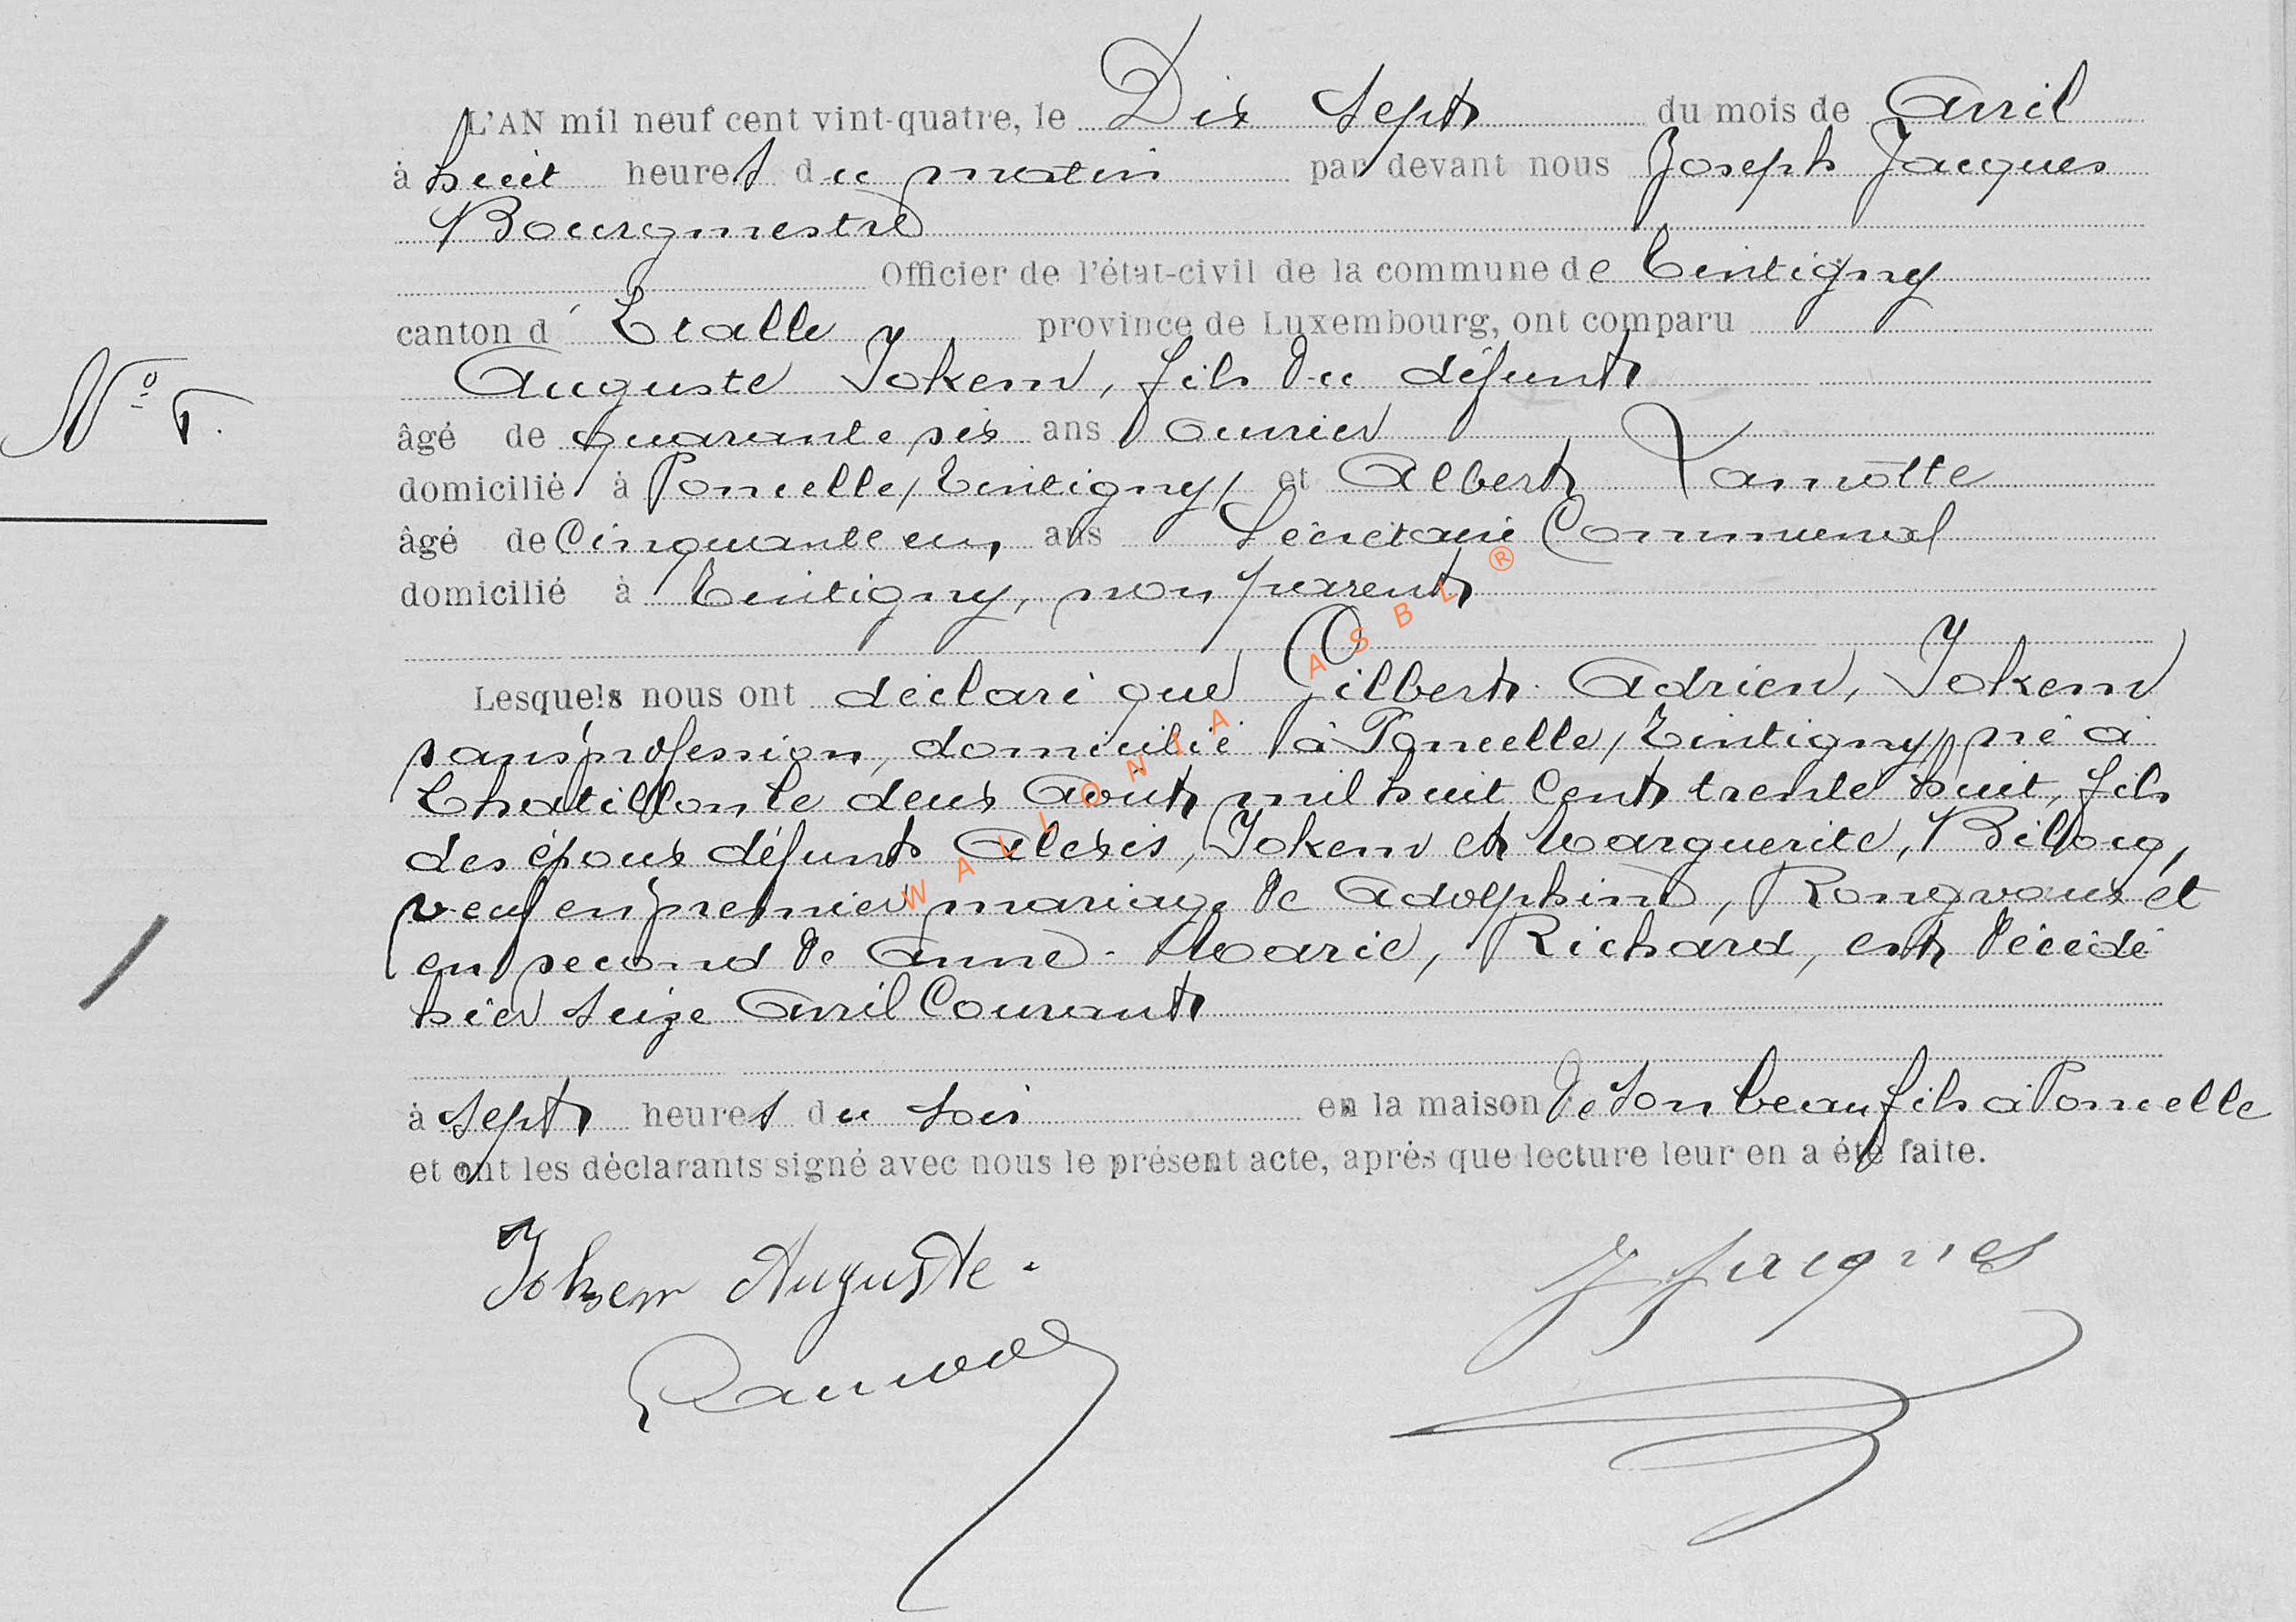 L'AN mil neuf cent vint-quatre, le Dix Sept du mois de Avril
à huit heures du matin par devant nous Joseph Jacques
Bourgmestre
Officier de l'état-civil de la commune de Tintigny
canton d'Etalle province de Luxembourg, ont comparu
Auguste Jokem, fils du défunt
N° 5.
âgé de quarante six ans ouvrier
domicilié à Poncelle /Tintigny/ et Albert Lamotte
âgé de Cinquante un ans Secrétaire Communal
domicilié à Tintigny, non parent
Lesquels nous ont déclaré que Gilbert Adrien, Jokem
sans profession, domicilié à Poncelle /Tintigny/ né à
Chatillon le deux Août mil huit cent trente huit, fils
des époux défunts Alexis, Jokem et Marguerite,
veuf en premier mariage de Adolphine, Rongvaux et
en second de Anne-Marie, Richard, est décédé
hier seize Avril Courant
à sept heures du soir en la maison de son beau fils à Poncelle
et ont les déclarants signé avec nous le présent acte, après que lecture leur en a été faite.
Jokem Auguste.
J Jacques
WALLONIA ASBL ®